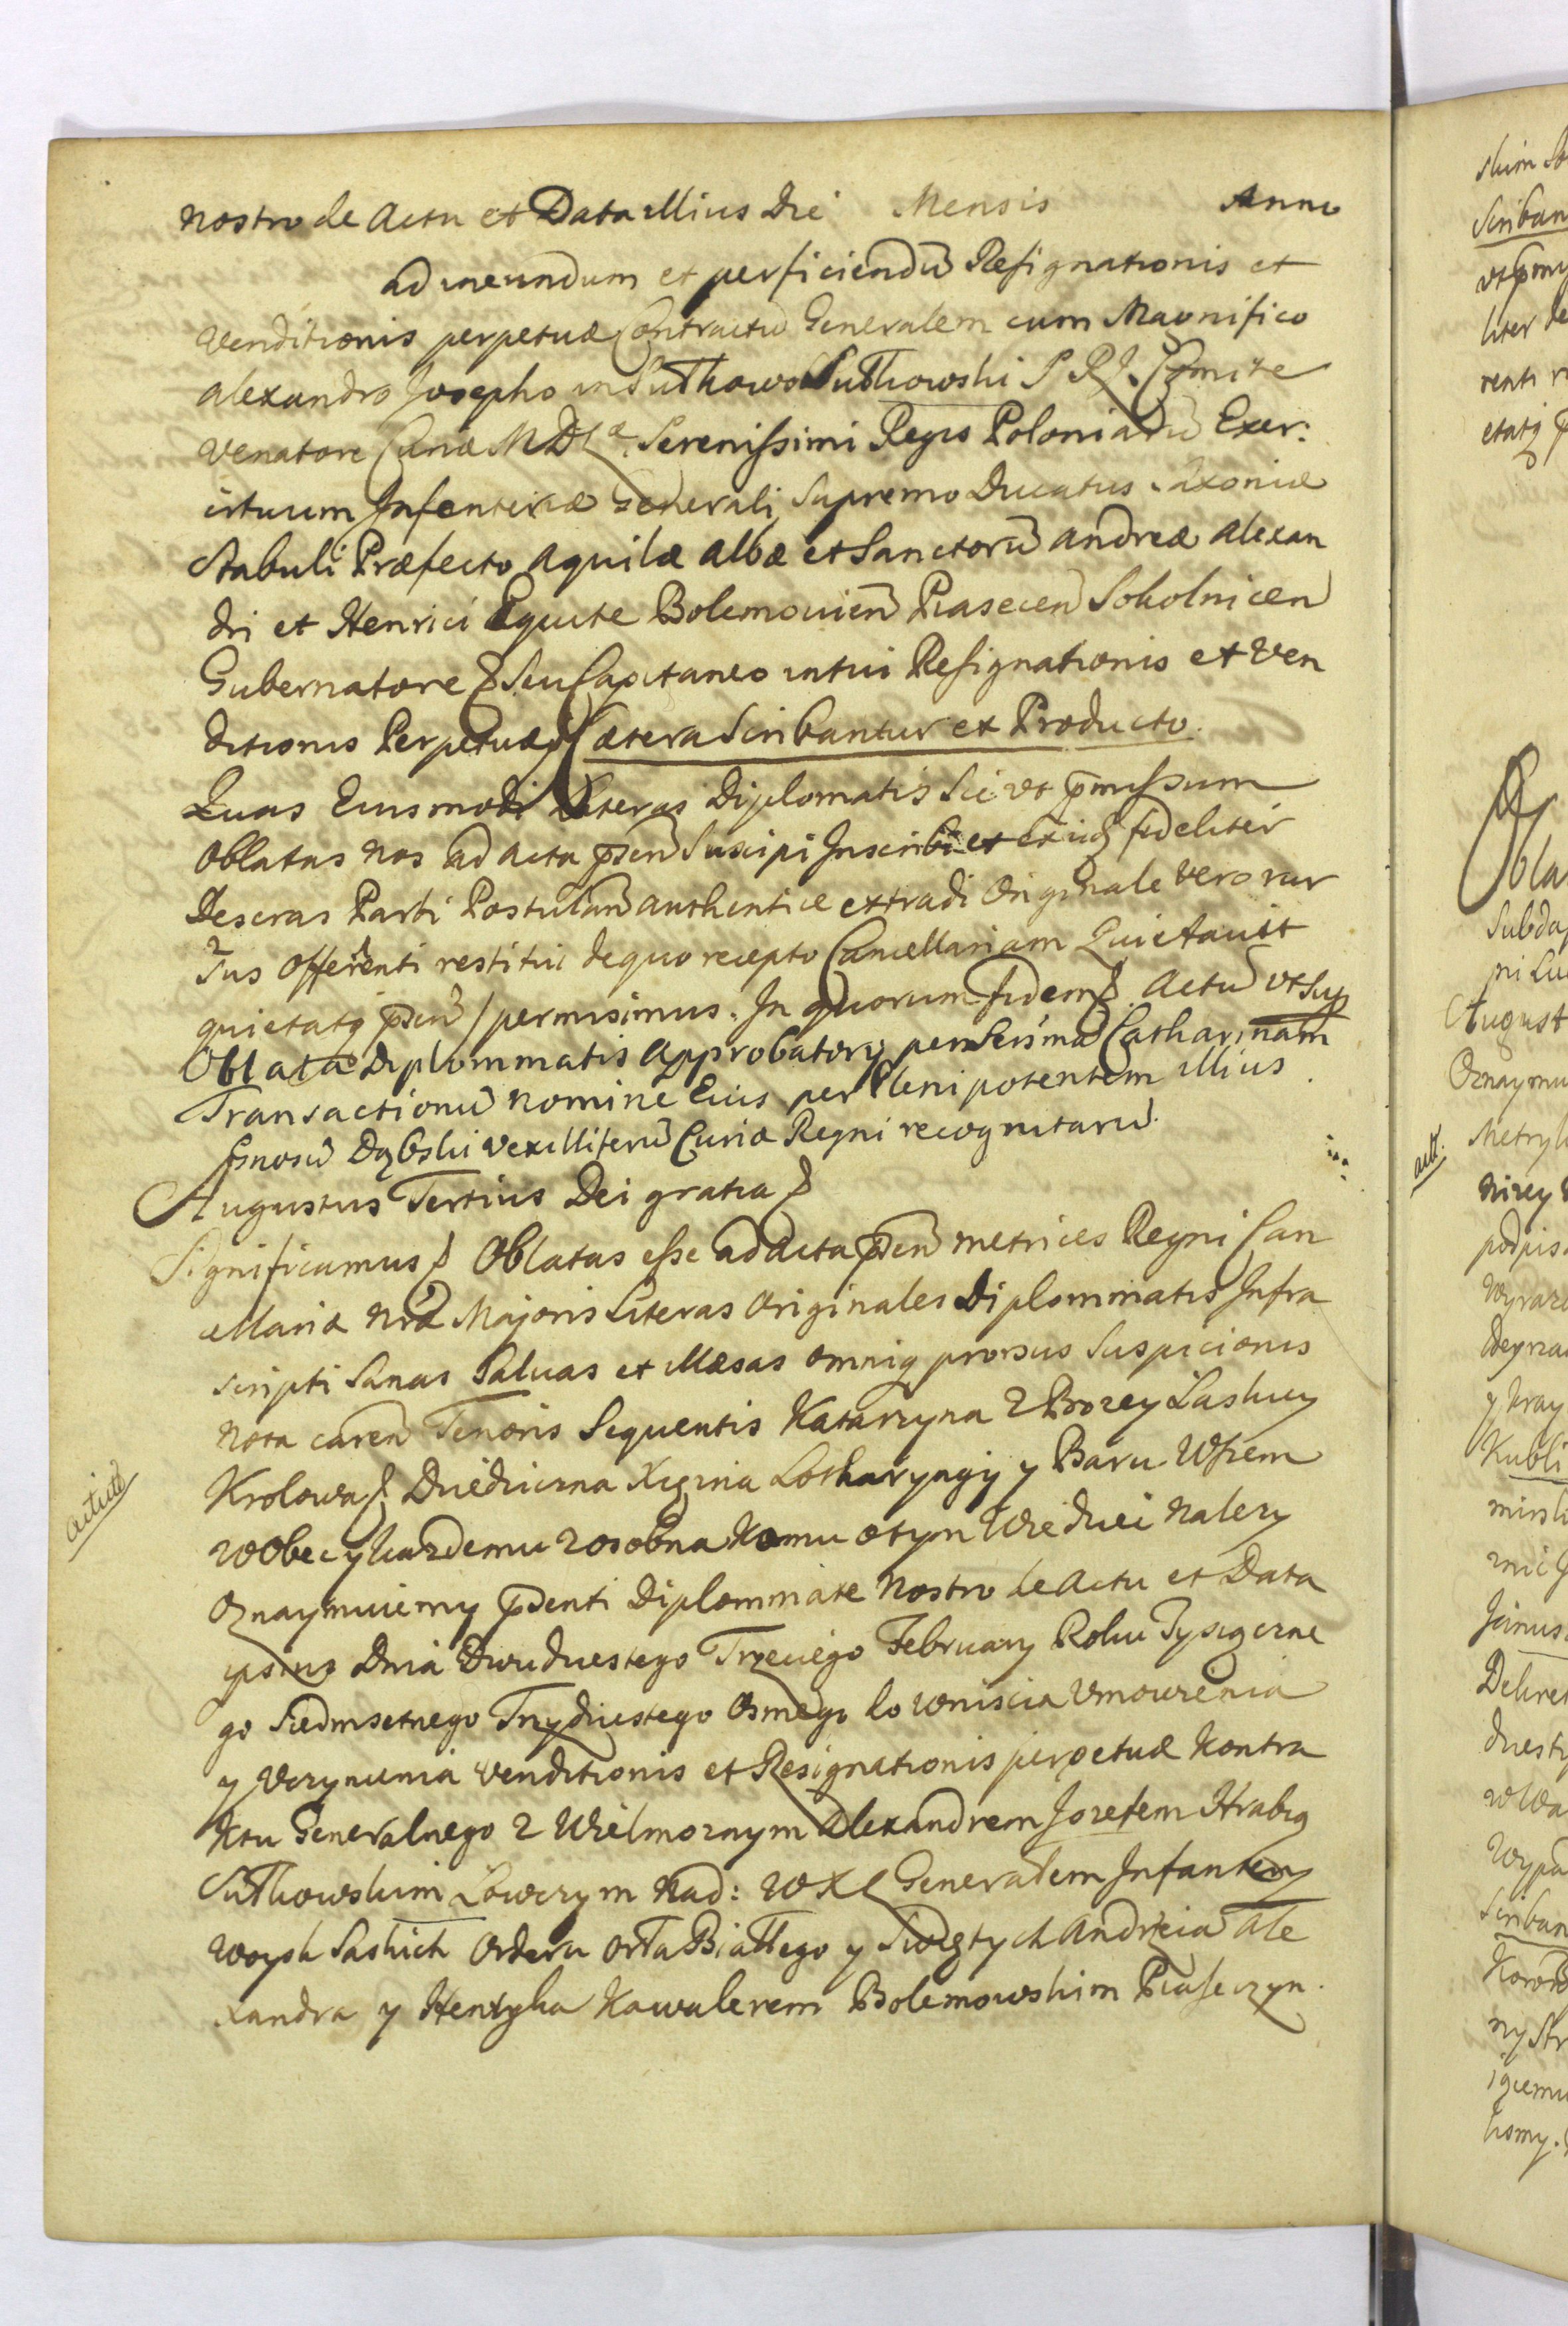 nostro de Actu et Data illius Die Mensis Anno
ad ineundum et perficiendũ Resignationis et
Venditionis perpetuæ Contractũ Generalem cum Magnifico
Alexandro Josepho in Sułkowo Sułkowski S R J. Comite
Venatore Curiæ M D L æ Serenissimi Regis Poloniarũ Exer:
cituum Infenteriæ Generali Supremo Ducatus Saxoniæ
Stabuli Præfecto Aquilæ Albæ et Sanctorũ Andreæ Alexan
dri et Henrici Equite Bolemouien Piasecen Sokolnicen
Gubernatore Seu Capitaneo intui Resignationis et Ven
ditionis Perpetuæ Cætera Scribantur ex Producto.
Quas Eiusmodi Literas Diplomatis Sic ut p̃missum
Oblatas Nos ad Acta p̃sen Suscipi Inscribi et exijs fideliter
Descras Parti Postulan authenticæ extradi Originale vero rur
sus Offerenti restitui de quo recepto Cancellariam Quietauit
quietatq p̃sen permisimus. In quorum fidem Actũ ut sup
Oblata Diplommatis Approbatorij per Serismã Catharinam
Transactionũ nomine Eius per Plenipotentem illius
Gnosũ Dąbski Vexilliferũ Curiæ Regni recognitarũ.
Augustus Tertius Dei gratia
Significamus Oblatas esse ad Acta p̃sen metrices Regni Can
cellariæ nrã Majoris Literas Originales Diplommatis Infra
scripti Sanas Saluas et Illæsas omniq prorsus Suspicionis
nota caren Tenoris Sequentis Katarzyna Z Bozey Łaski
Krolowa Dziedziczna Xiężna Lotharyngij y Baru Wszem
Wobec y każdemu z osobna Komu o tym Wiedziec Nalezy
Oznaymuiemy p̃senti Diplommate Nostro de Actu et Data
ipsius Dnia Dwudziestego Trzeciego February Roku Tysiączne
go Siedmsetnego Trzydziestego Osmego Do Wniscia Umowienia
y Uczynienia Venditionis et Resignationis perpetuæ Kontra
ktu Generalnego z Wielmoznym Alexandrem Jozefem Hrabią
Sułkowskim Łowczym Nad: W X L Generałem Infantery
Woysk Saskich Orderu Orła Białłego y Swiętych Andrzeia Ale
xandra y Henryka Kawalerem Bolemowskim Piaseczyn.